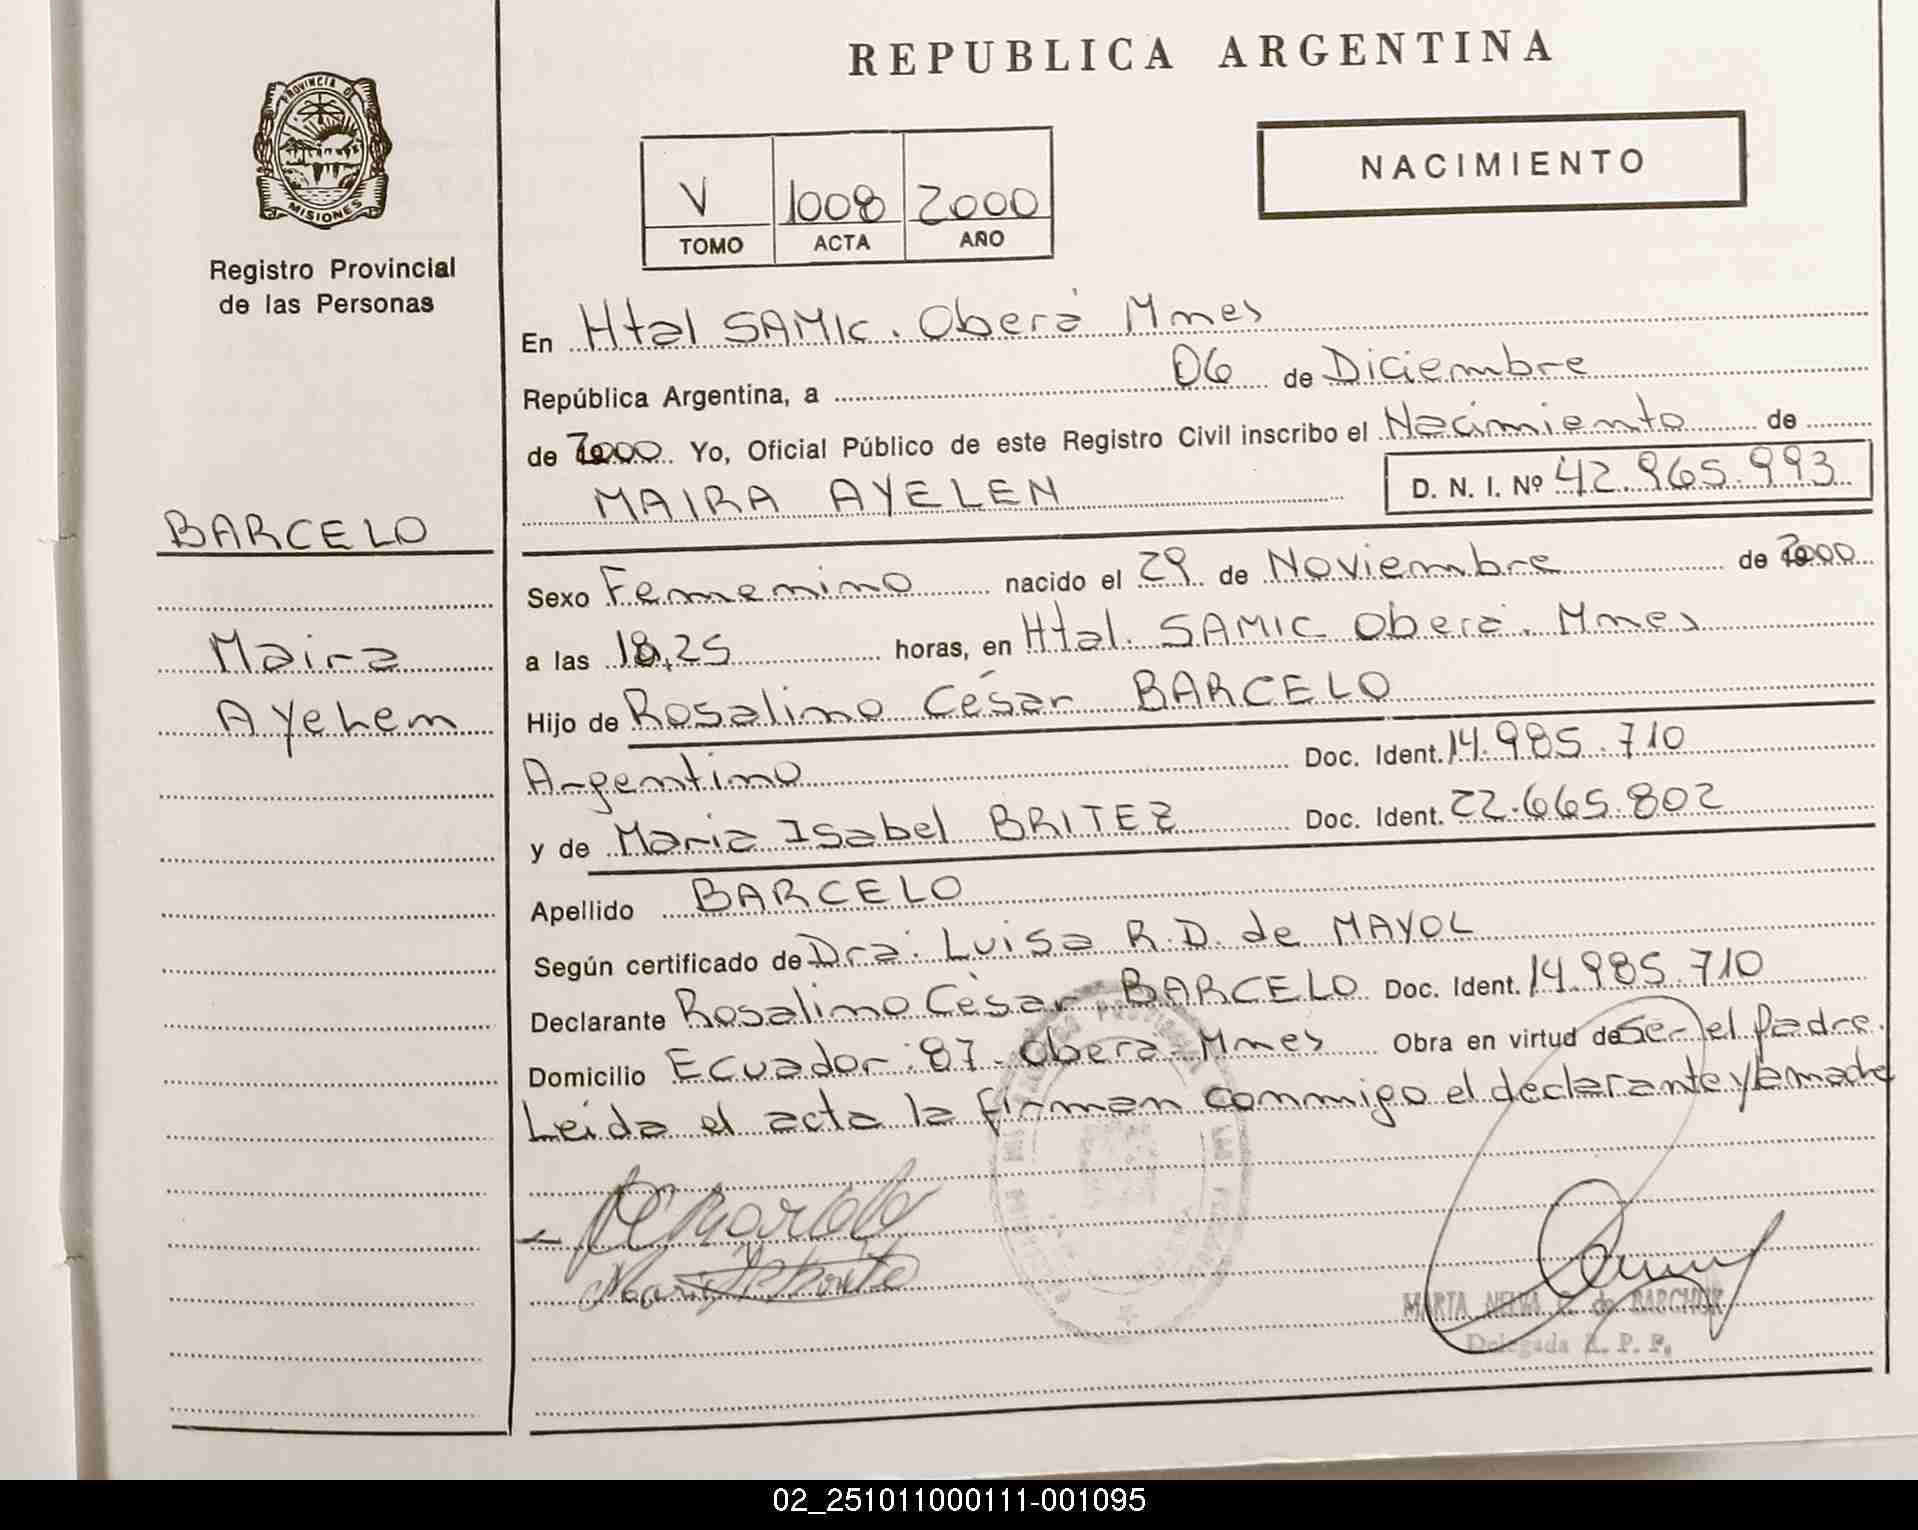 REPUBLICA ARGENTINA
PROVINCIA DE
MISIONES
Registro Provincial
de las Personas
NACIMIENTO
V 1008 2000
TOMO ACTA AÑO
En Htal SAMIC. Oberá Mnes
República Argentina, a 06 de Diciembre
de 2000 Yo, Oficial Público de este Registro Civil inscribo el Nacimiento de
MAIRA AYELEN D. N. I. Nº 42.965.993
BARCELO
Maira
Ayelen
Sexo Femenino nacido el 29 de Noviembre de 2000
a las 18,25 horas, en Htal. SAMIC Oberá. Mnes
Hijo de Rosalino César BARCELO
Argentino Doc. Ident. 14.985.710
y de Maria Isabel BRITEZ Doc. Ident. 22.665.802
Apellido BARCELO
Según certificado de Dra. Luisa R.D. de MAYOL
Declarante Rosalino César BARCELO Doc. Ident. 14.985.710
Domicilio Ecuador 87 - Oberá - Mnes Obra en virtud de ser el padre.
Leida el acta la firman conmigo el declarante y la madre
MARTA NELVA de BARCHUK
Delegada R. P. P.
02_251011000111-001095